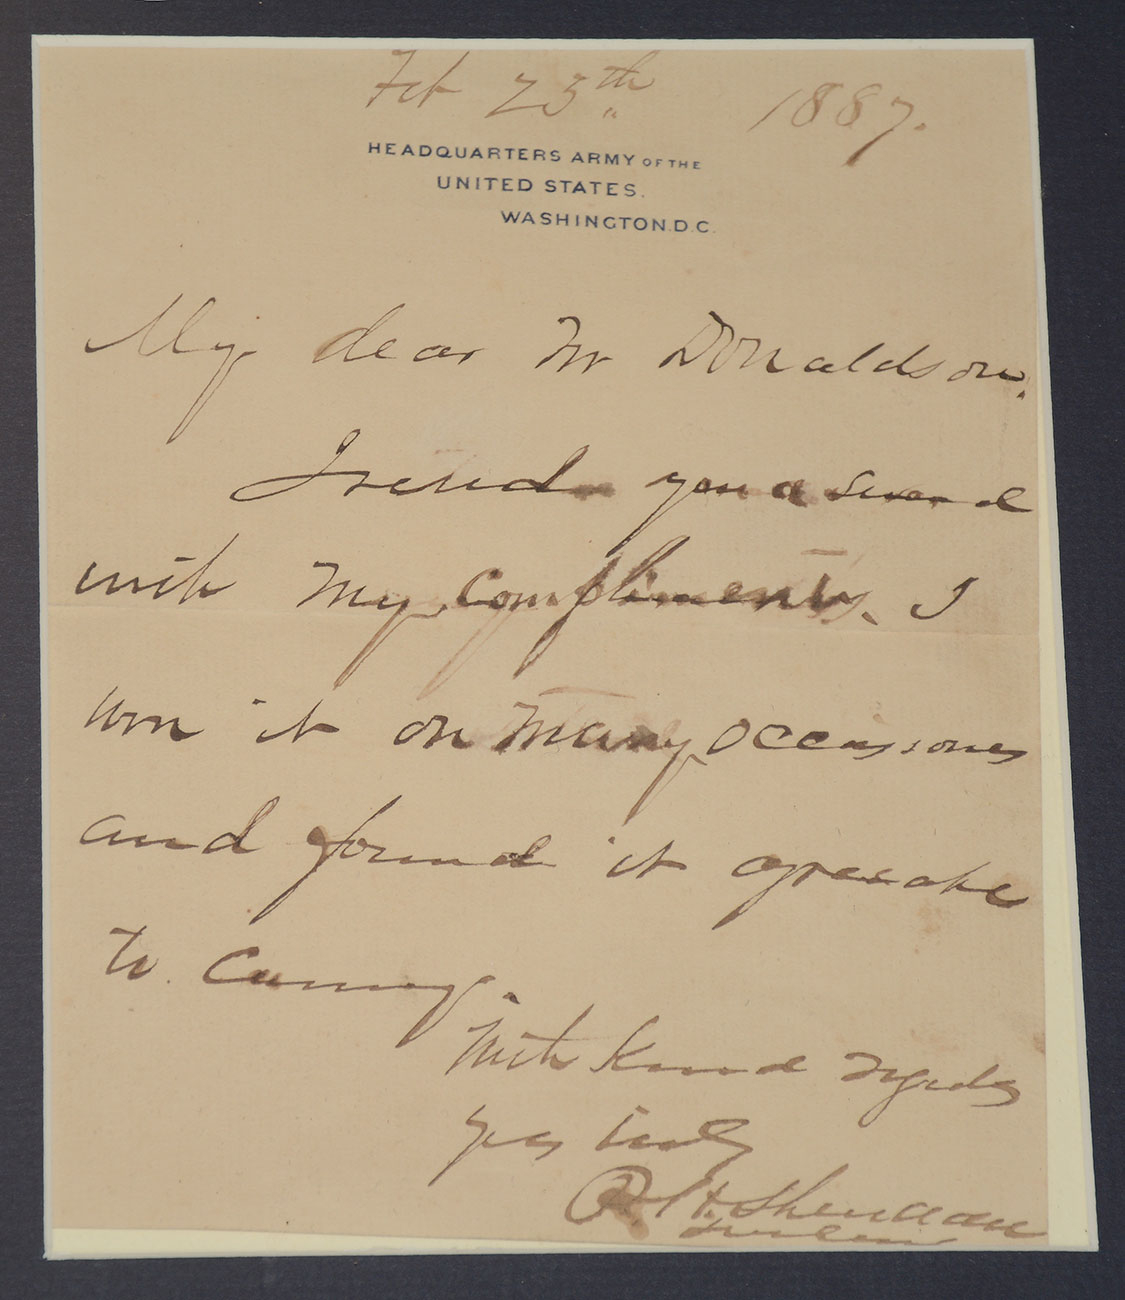 Feb 25th 1887.
HEADQUARTERS ARMY OF THE
UNITED STATES.
WASHINGTON. D.C.
My dear Mr Donaldson.
I send you a sword
with my compliments. I
worn it on many occasions
and found it agreeable
to carry.
With kind regards
yours truly
P. H. Sheridan